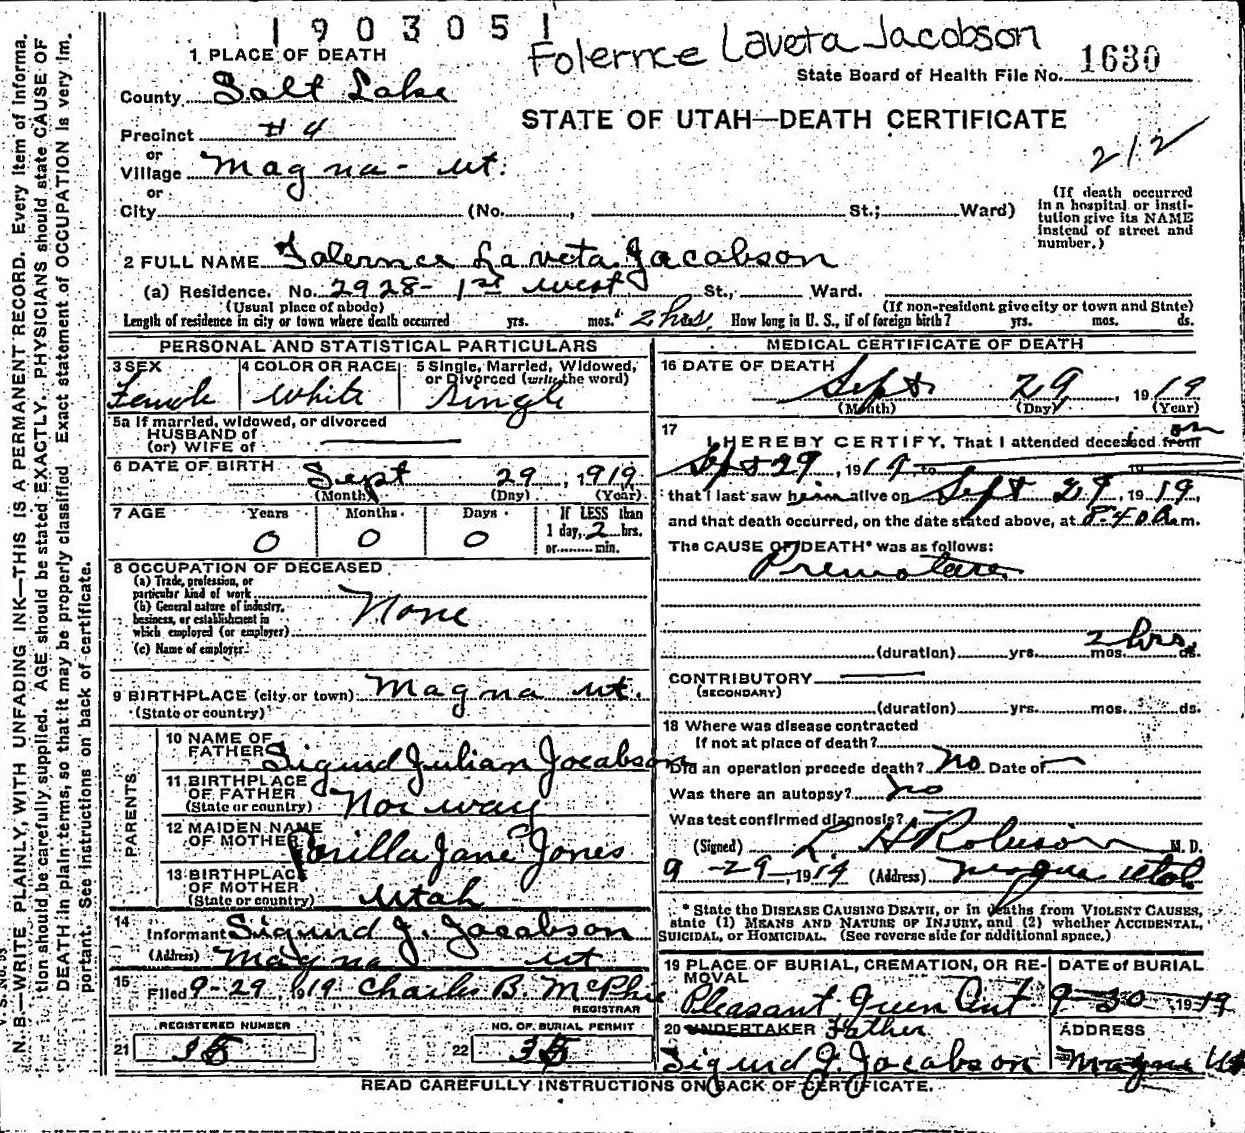 1903051
Folernce Laveta Jacobson
1 PLACE OF DEATH
State Board of Health File No. 1630
County Salt Lake
STATE OF UTAH—DEATH CERTIFICATE
Precinct #4
212
or
Village Magna - ut.
or
City (No. , St.; Ward)
(If death occurred in a hospital or insti-
tution give its NAME
instead of street and
number.)
2 FULL NAME Folernce Laveta Jacobson
(a) Residence. No. 2928- 1st west St., Ward.
(Usual place of abode) (If non-resident give city or town and State)
Length of residence in city or town where death occurred yrs. mos. 2 hrs. How long in U. S., if of foreign birth? yrs. mos. ds.
PERSONAL AND STATISTICAL PARTICULARS
3 SEX
Female
4 COLOR OR RACE
White
5 Single, Married, Widowed,
or Divorced (write the word)
Single
5a If married, widowed, or divorced
HUSBAND of
(or) WIFE of
6 DATE OF BIRTH Sept 29, 1919
(Month) (Day) (Year)
7 AGE Years Months Days If LESS than
0 0 0 1 day, 2 hrs.
or min.
8 OCCUPATION OF DECEASED
(a) Trade, profession, or
particular kind of work
(b) General nature of industry,
business, or establishment in
which employed (or employer)
None
(c) Name of employer
9 BIRTHPLACE (city or town) Magna ut.
(State or country)
PARENTS
10 NAME OF
FATHER Sigurd Julian Jacobson
11 BIRTHPLACE
OF FATHER
(State or country) Norway
12 MAIDEN NAME
OF MOTHER Jane Jones
13 BIRTHPLACE
OF MOTHER
(State or country) Utah
14 Informant Sigurd J. Jacobson
(Address) Magna ut
15 Filed 9-29, 1919 Charles B. McPhie
REGISTRAR
REGISTERED NUMBER
21
NO. OF BURIAL PERMIT
22
MEDICAL CERTIFICATE OF DEATH
16 DATE OF DEATH
Sept 29, 1919
(Month) (Day) (Year)
17
I HEREBY CERTIFY, That I attended deceased from on
Sept 29, 1919 to 19
that I last saw him alive on Sept 29, 1919,
and that death occurred, on the date stated above, at 8-40 a.m.
The CAUSE OF DEATH* was as follows:
Premature
2 hrs.
(duration) yrs. mos. ds.
CONTRIBUTORY
(SECONDARY)
(duration) yrs. mos. ds.
18 Where was disease contracted
If not at place of death?
Did an operation precede death? No Date of
Was there an autopsy? No
Was test confirmed diagnosis?
(Signed) L. H. Robinson M. D.
9-29-, 1919 (Address) Magna Utah.
* State the DISEASE CAUSING DEATH, or in deaths from VIOLENT CAUSES,
state (1) MEANS AND NATURE OF INJURY, and (2) whether ACCIDENTAL,
SUICIDAL, or HOMICIDAL. (See reverse side for additional space.)
19 PLACE OF BURIAL, CREMATION, OR RE-
MOVAL
Pleasant Green
DATE OF BURIAL
9-30 1919
20 UNDERTAKER Father
Sigurd J. Jacobson
ADDRESS
Magna Ut
READ CAREFULLY INSTRUCTIONS ON BACK OF CERTIFICATE.
N. B.—WRITE PLAINLY, WITH UNFADING INK—THIS IS A PERMANENT RECORD. Every item of informa-
tion should be carefully supplied. AGE should be stated EXACTLY. PHYSICIANS should state CAUSE OF
DEATH in plain terms, so that it may be properly classified. Exact statement of OCCUPATION is very im-
portant. See instructions on back of certificate.